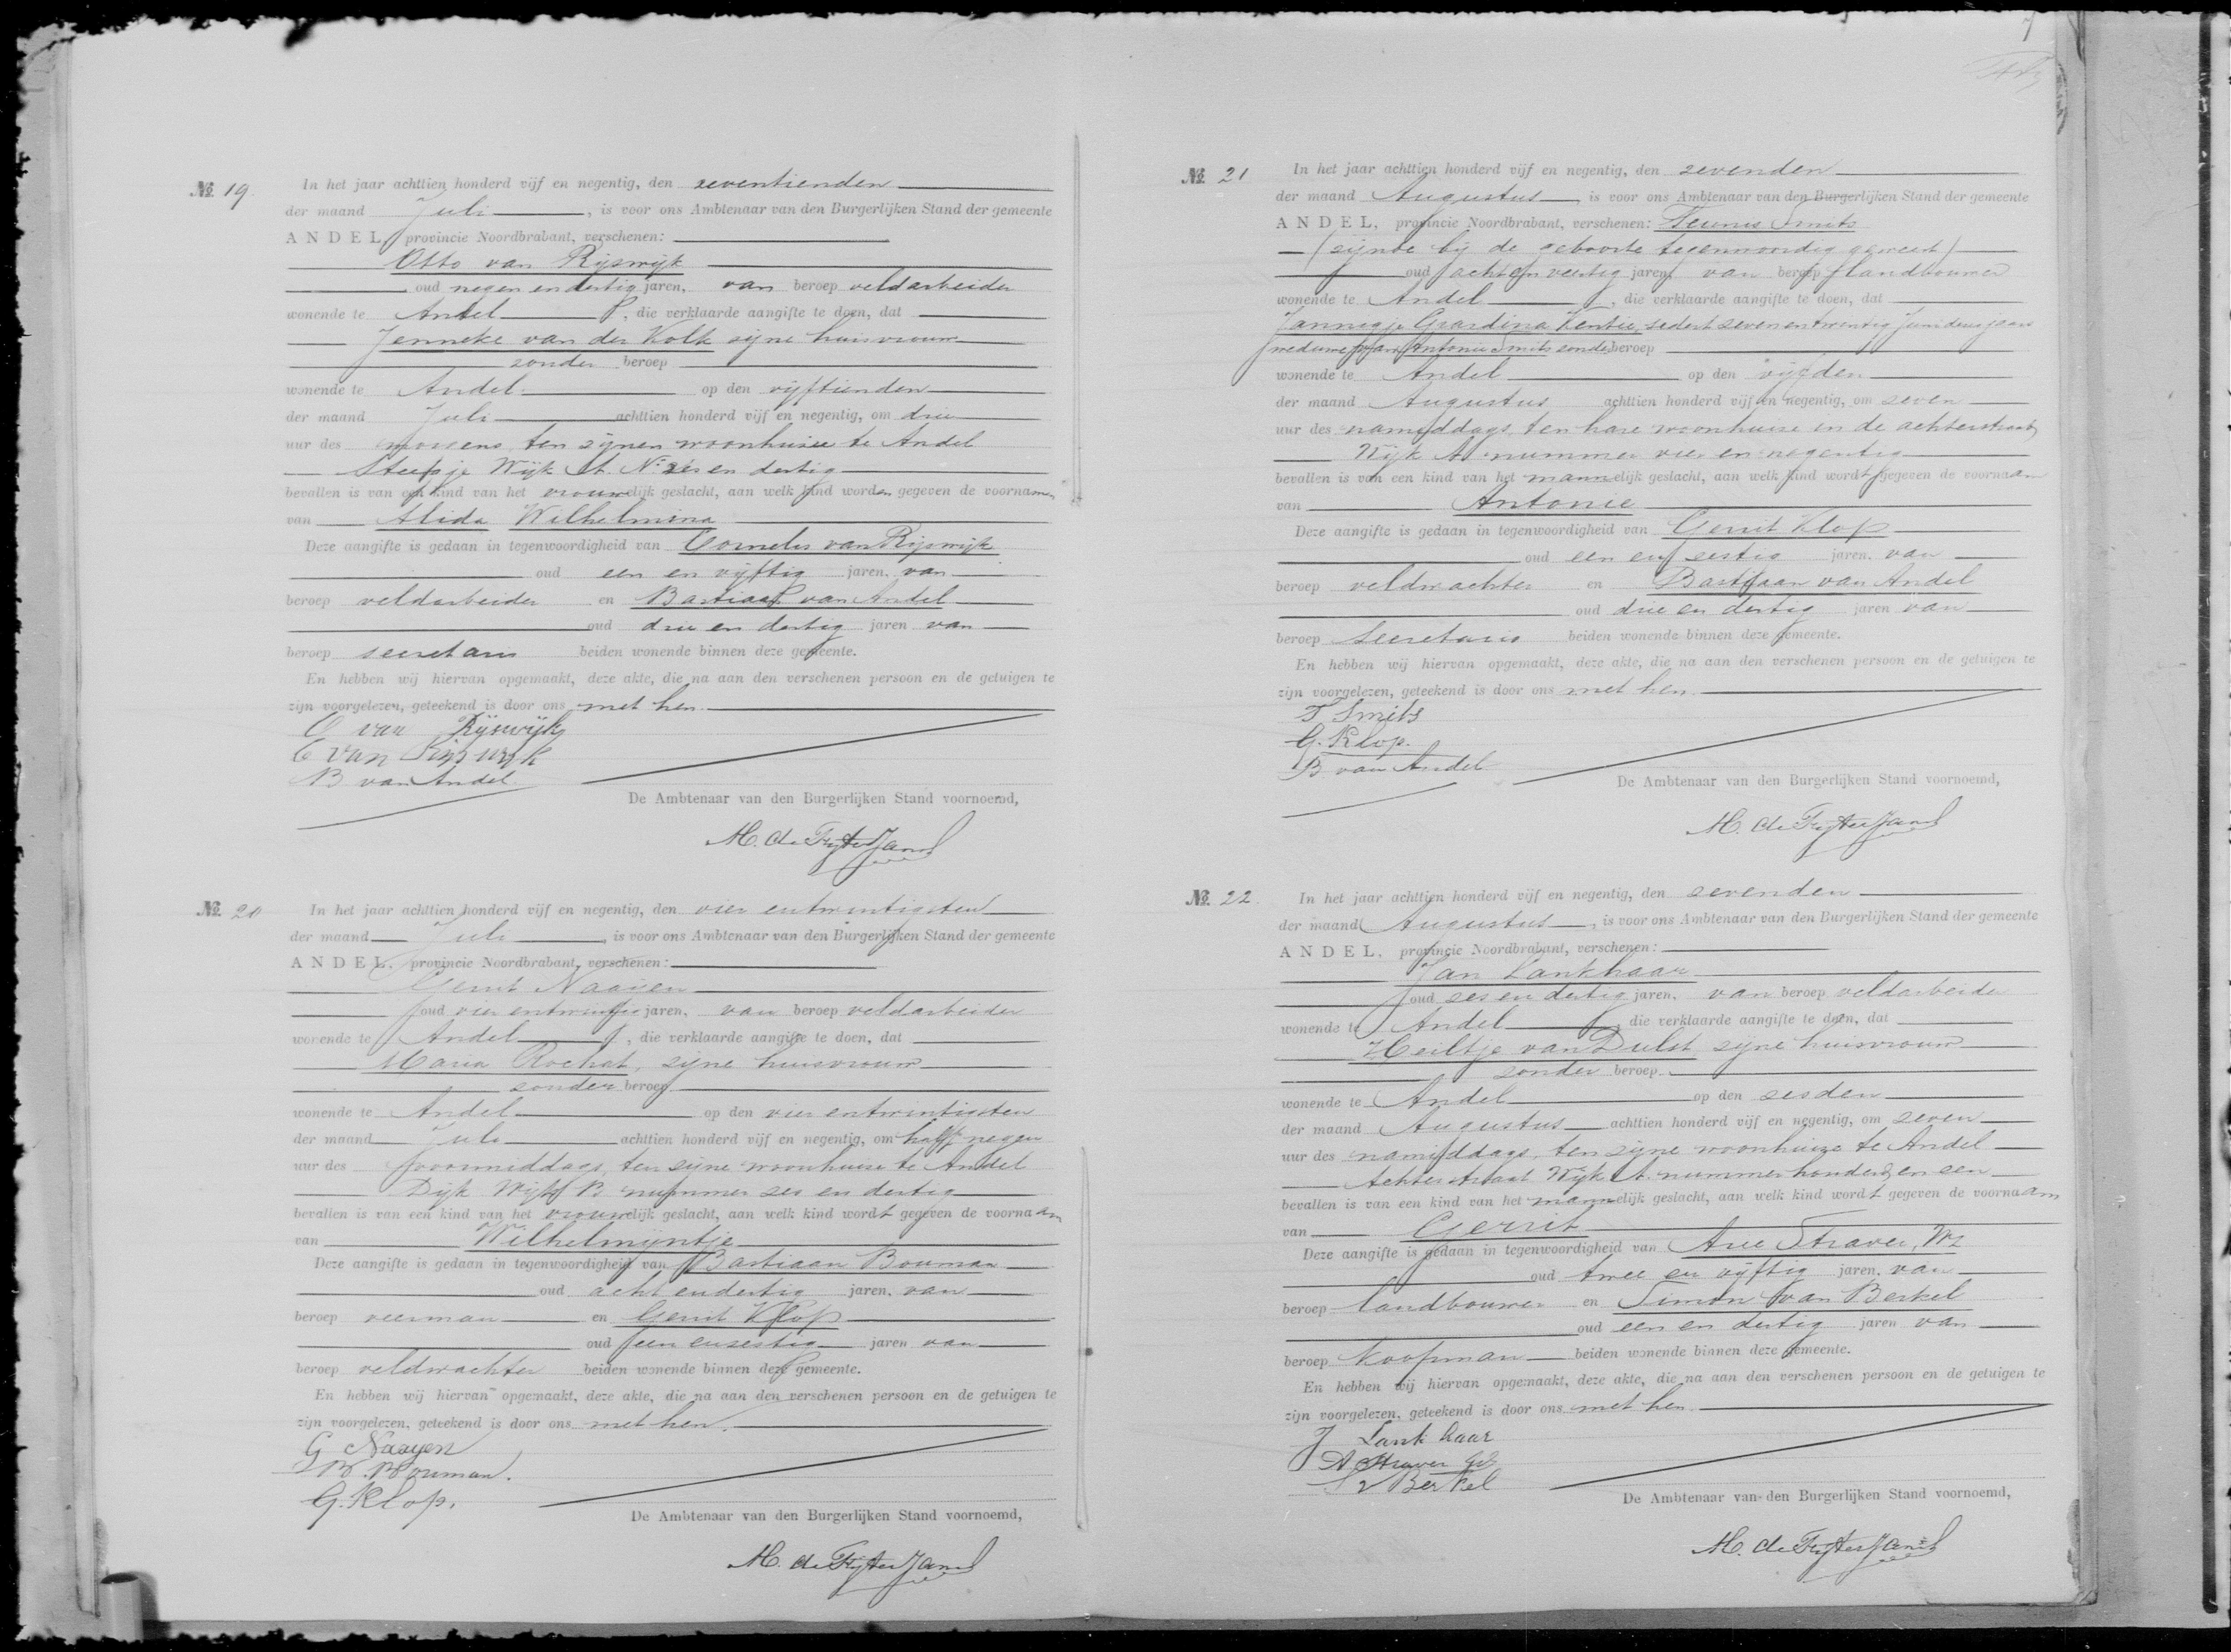 7
№ 19. In het jaar achttien honderd vijf en negentig, den zeventienden
der maand Juli, is voor ons Ambtenaar van den Burgerlijken Stand der gemeente
ANDEL, provincie Noordbrabant, verschenen:
Otto van Rijswijk
oud negen en dertig jaren, van beroep veldarbeider
wonende te Andel, die verklaarde aangifte te doen, dat
Jenneke van der Kolk zijne huisvrouw
zonder beroep
wonende te Andel op den vijftienden
der maand Juli achttien honderd vijf en negentig, om drie
uur des morgens, ten zijnen woonhuize te Andel
Steegje Wijk A. No. zes en dertig
bevallen is van een kind van het vrouwelijk geslacht, aan welk kind worden gegeven de voornamen
van Alida Wilhelmina
Deze aangifte is gedaan in tegenwoordigheid van Cornelis van Rijswijk
oud een en vijftig jaren, van
beroep veldarbeider en Bastiaan van Andel
oud drie en dertig jaren van
beroep secretaris beiden wonende binnen deze gemeente.
En hebben wij hiervan opgemaakt, deze akte, die na aan den verschenen persoon en de getuigen te
zijn voorgelezen, geteekend is door ons met hen.
O van Rijswijk
C van Rijswijk
B van Andel
De Ambtenaar van den Burgerlijken Stand voornoemd,
M. de Fijter Janz
№ 20 In het jaar achttien honderd vijf en negentig, den vier entwintigsten
der maand Juli, is voor ons Ambtenaar van den Burgerlijken Stand der gemeente
ANDEL, provincie Noordbrabant, verschenen:
Gerrit Naaijen
oud vier entwintig jaren, van beroep veldarbeider
wonende te Andel, die verklaarde aangifte te doen, dat
Maria Rochat, zijne huisvrouw
zonder beroep
wonende te Andel op den vier entwintigsten
der maand Juli achttien honderd vijf en negentig, om half negen
uur des voormiddags, ten zijne woonhuize te Andel
Dijk Wijk B nummer zes en dertig
bevallen is van een kind van het vrouwelijk geslacht, aan welk kind wordt gegeven de voornaam
van Wilhelmijntje
Deze aangifte is gedaan in tegenwoordigheid van Bastiaan Bouman
oud acht endertig jaren, van
beroep veerman en Gerrit Klop
oud een enzestig jaren van
beroep veldwachter beiden wonende binnen deze gemeente.
En hebben wij hiervan opgemaakt, deze akte, die na aan den verschenen persoon en de getuigen te
zijn voorgelezen, geteekend is door ons met hen.
G Naayen
B. Bouman.
G. Klop.
De Ambtenaar van den Burgerlijken Stand voornoemd,
M. de Fijter Janz
№ 21 In het jaar achttien honderd vijf en negentig, den zevenden
der maand Augustus, is voor ons Ambtenaar van den Burgerlijken Stand der gemeente
ANDEL, provincie Noordbrabant, verschenen: Teunis Smits
(zijnde bij de geboorte tegenwoordig geweest)
oud acht en veertig jaren, van beroep landbouwer
wonende te Andel, die verklaarde aangifte te doen, dat
Jannigje Gerardina Kentie, sedert zevenentwintig Juni dezes jaars
weduwe van Antonie Smits zonder beroep
wonende te Andel op den vijfden
der maand Augustus achttien honderd vijf en negentig, om zeven
uur des namiddags, ten hare woonhuize in de achterstraat,
Wijk A nummer vier en negentig
bevallen is van een kind van het mannelijk geslacht, aan welk kind wordt gegeven de voornaam
van Antonie
Deze aangifte is gedaan in tegenwoordigheid van Gerrit Klop
oud een en zestig jaren, van
beroep veldwachter en Bastiaan van Andel
oud drie en dertig jaren van
beroep Secretaris beiden wonende binnen deze gemeente.
En hebben wij hiervan opgemaakt, deze akte, die na aan den verschenen persoon en de getuigen te
zijn voorgelezen, geteekend is door ons met hen.
T Smits
G. Klop.
B van Andel
De Ambtenaar van den Burgerlijken Stand voornoemd,
M. de Fijter Janz
№ 22. In het jaar achttien honderd vijf en negentig, den zevenden
der maand Augustus, is voor ons Ambtenaar van den Burgerlijken Stand der gemeente
ANDEL, provincie Noordbrabant, verschenen:
Jan Lankhaar
oud zes en dertig jaren, van beroep veldarbeider
wonende te Andel, die verklaarde aangifte te doen, dat
Heiltje van Dulst zijne huisvrouw
zonder beroep
wonende te Andel op den zesden
der maand Augustus achttien honderd vijf en negentig, om zeven
uur des namiddags, ten zijne woonhuize te Andel
Achterstraat Wijk A. nummer honderd en een
bevallen is van een kind van het mannelijk geslacht, aan welk kind wordt gegeven de voornaam
van Gerrit
Deze aangifte is gedaan in tegenwoordigheid van Arie Straver, Wz
oud twee en vijftig jaren, van
beroep landbouwer en Simon van Berkel
oud een en dertig jaren van
beroep koopman beiden wonende binnen deze gemeente.
En hebben wij hiervan opgemaakt, deze akte, die na aan den verschenen persoon en de getuigen te
zijn voorgelezen, geteekend is door ons met hen.
J Lankhaar
A Straver
S v Berkel
De Ambtenaar van den Burgerlijken Stand voornoemd,
M. de Fijter Janz